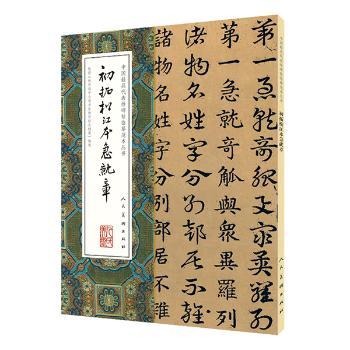 第一急就奇觚與眾異羅列
第一急就奇觚與眾異羅列
諸物名姓字分別部居不雜
諸物名姓字分別部居不雜
中国最具代表性碑帖临摹范本丛书
初拓松江本急就章
人民美术出版社